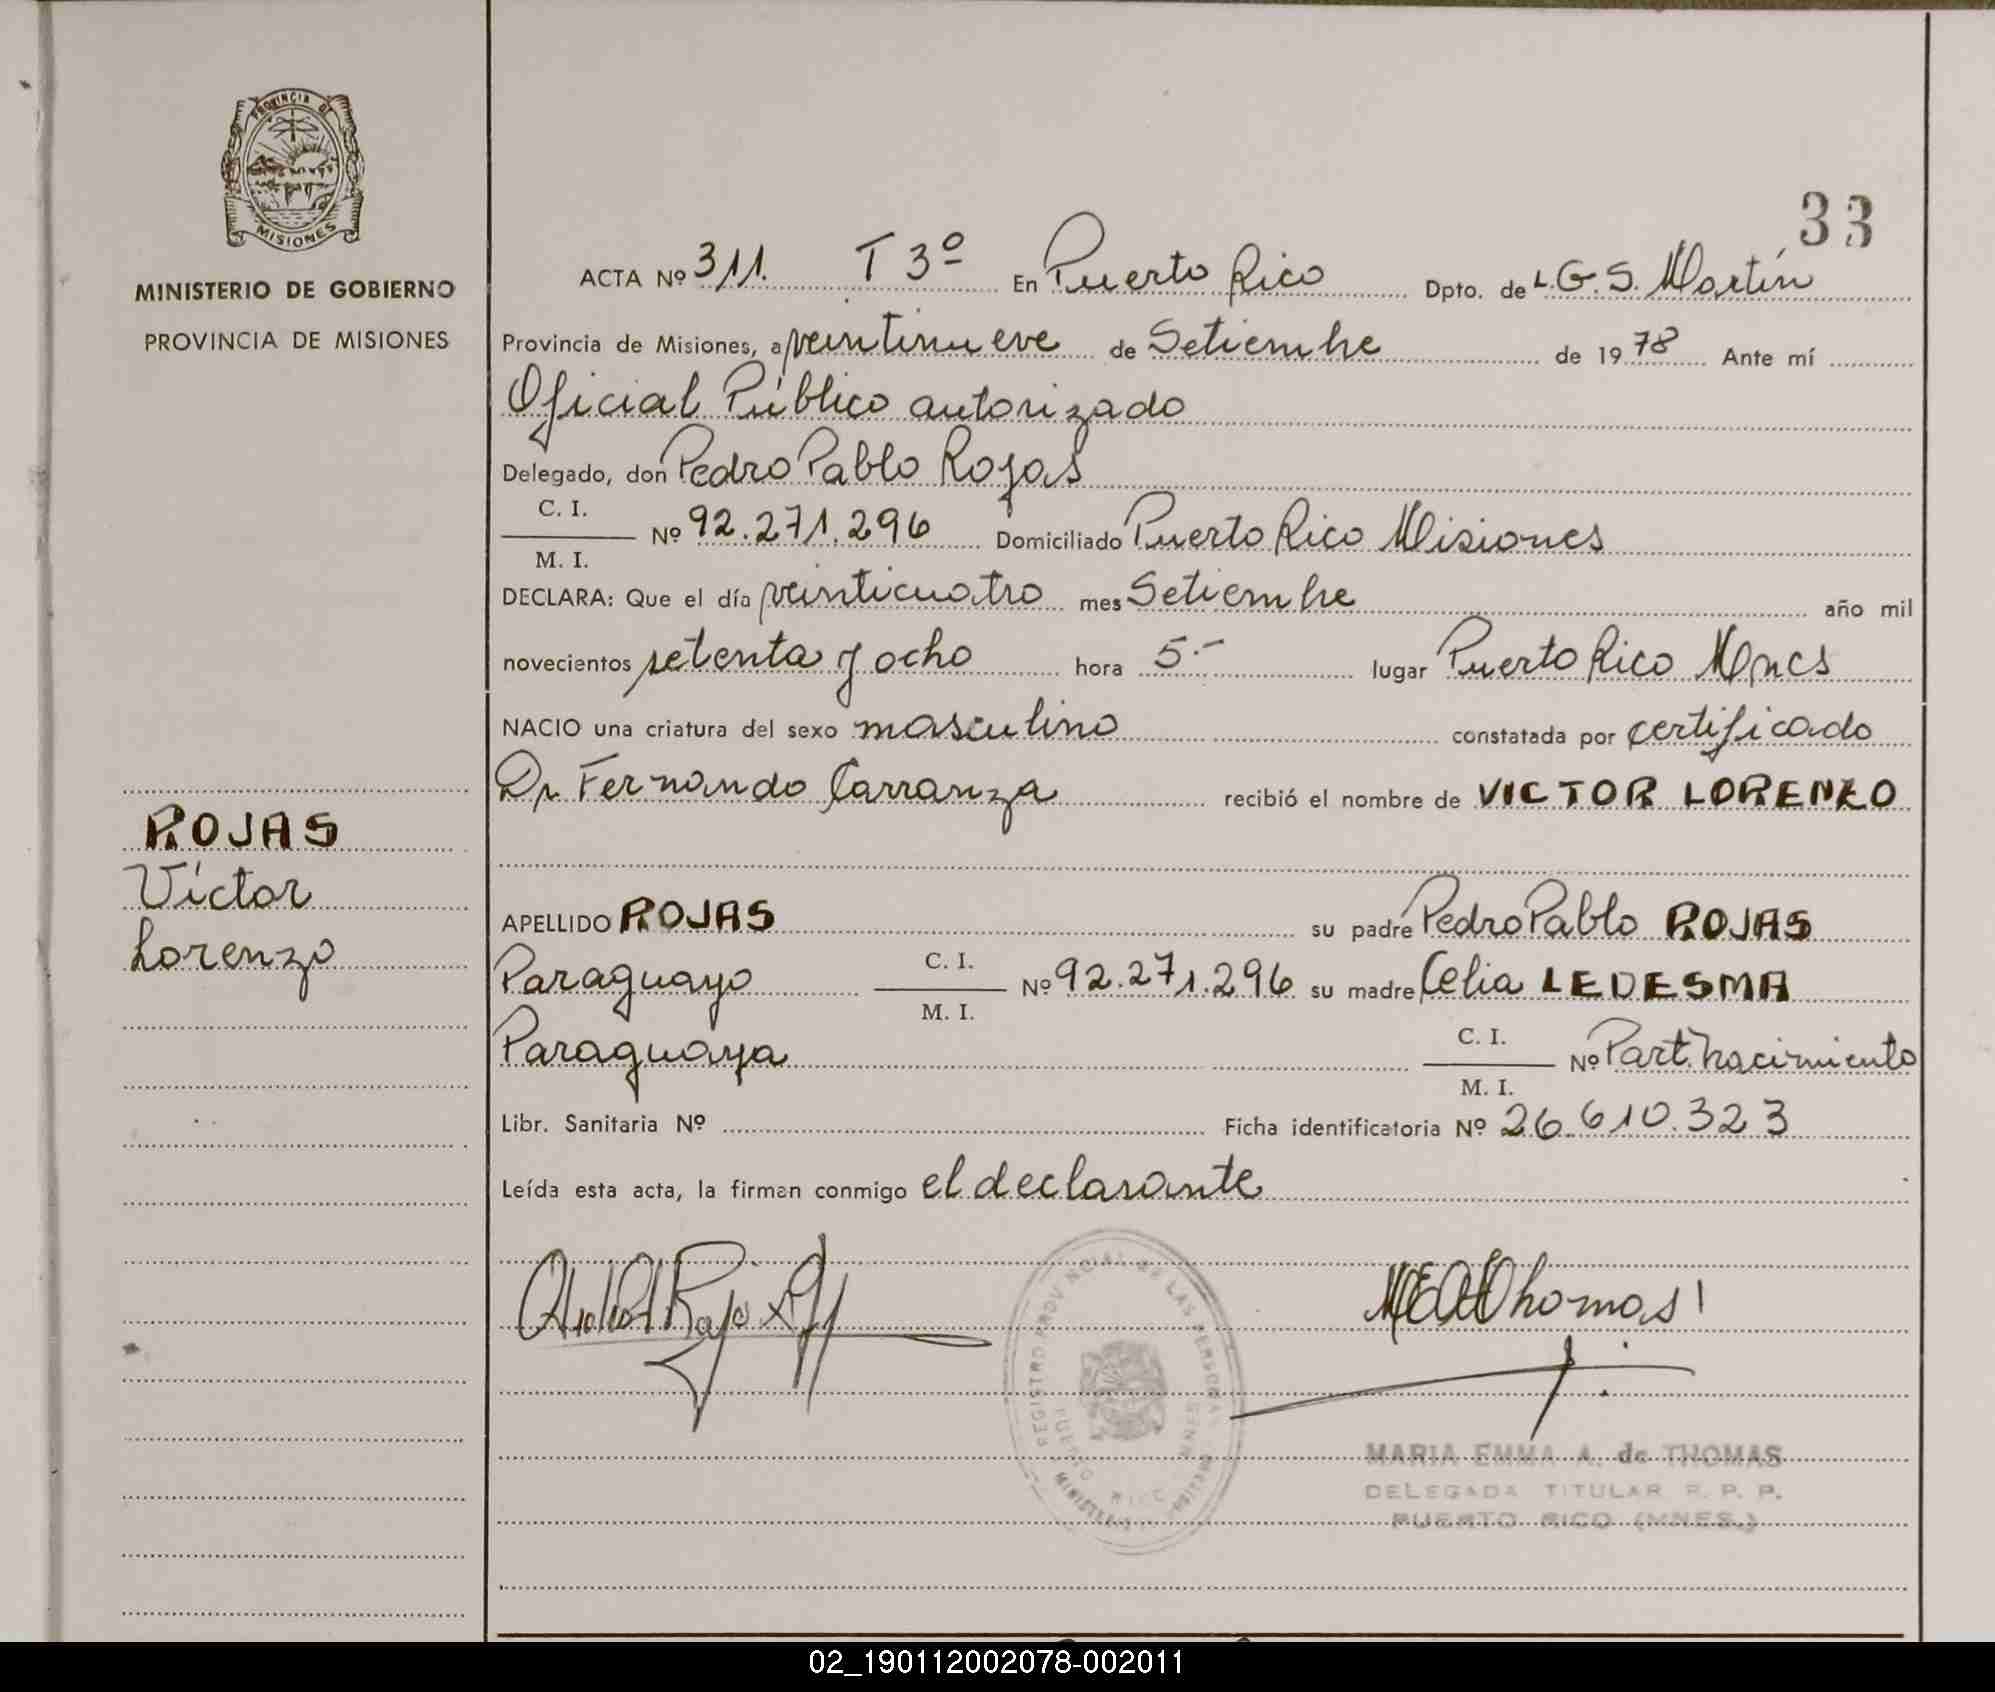 PROVINCIA DE
MISIONES
MINISTERIO DE GOBIERNO
PROVINCIA DE MISIONES
ROJAS
Víctor
Lorenzo
33
ACTA Nº 311. T 3º En Puerto Rico Dpto. de L.G.S. Martín
Provincia de Misiones, a veintinueve de Setiembre de 1978 Ante mí
Oficial Público autorizado
Delegado, don Pedro Pablo Rojas
C. I.
M. I.
Nº 92.271.296 Domiciliado Puerto Rico Misiones
DECLARA: Que el día veinticuatro mes Setiembre año mil
novecientos setenta y ocho hora 5.- lugar Puerto Rico Mnes
NACIO una criatura del sexo masculino constatada por certificado
Dr. Fernando Carranza recibió el nombre de VICTOR LORENZO
APELLIDO ROJAS su padre Pedro Pablo ROJAS
Paraguayo C. I. M. I. Nº 92.271.296 su madre Celia LEDESMA
Paraguaya C. I. M. I. Nº Part. nacimiento
Libr. Sanitaria Nº Ficha identificatoria Nº 26.610.323
Leída esta acta, la firman conmigo el declarante
REGISTRO PROVINCIAL DE LAS PERSONAS
PUERTO RICO
MARIA EMMA A. de THOMAS
DELEGADA TITULAR R. P. P.
PUERTO RICO (MNES.)
02_190112002078-002011